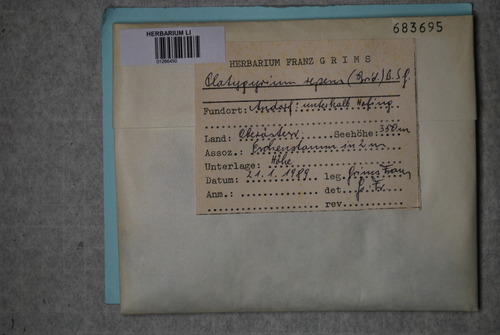 683695
HERBARIUM LI
01266450
HERBARIUM FRANZ GRIMS
Platygyrium repens (Brid.) B.S.G.
Fundort: Andorf: unterhalb Hefing
Land: Oberösterr. Seehöhe: 350m
Assoz.: Eschenstamm in 2 m
Unterlage: Höhe
Datum: 21.1.1989 leg. Grims Franz
Anm.: det. G. Fr.
rev.